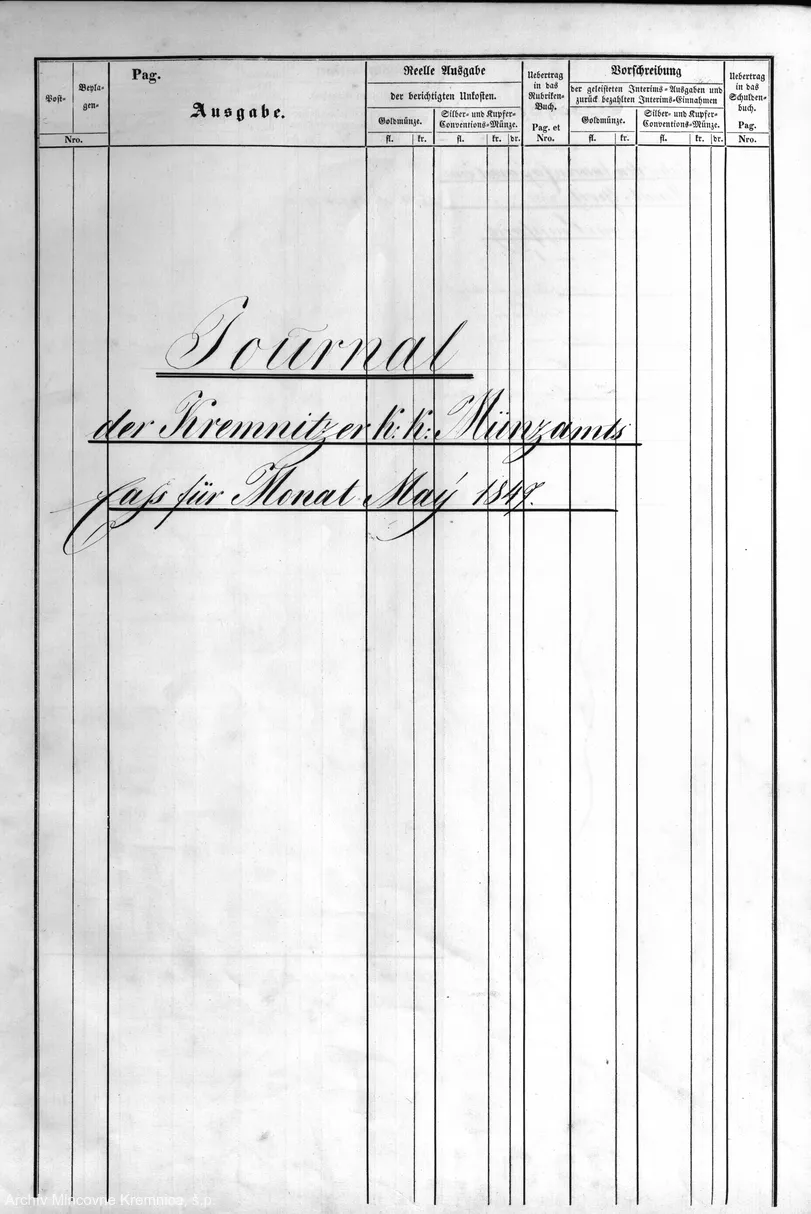 Pag.
Ausgabe.
Post-
Beyla-
gen-
Nro.
Reelle Ausgabe
der berichtigten Unkosten.
Goldmünze.
Silber- und Kupfer-
Conventions-Münze.
fl. kr. fl. kr. dr.
Uebertrag
in das
Rubriken-
Buch.
Pag. et
Nro.
Vorschreibung
der geleisteten Interims-Ausgaben und
zurück bezahlten Interims-Einnahmen
Goldmünze.
Silber- und Kupfer-
Conventions-Münze.
fl. kr. fl. kr. dr.
Uebertrag
in das
Schulden-
buch.
Pag.
Nro.
Journal
der Kremnitzer k: k: Münzamts
Cass für Monat May 1847.
Archív Mincovne Kremnica, š.p.